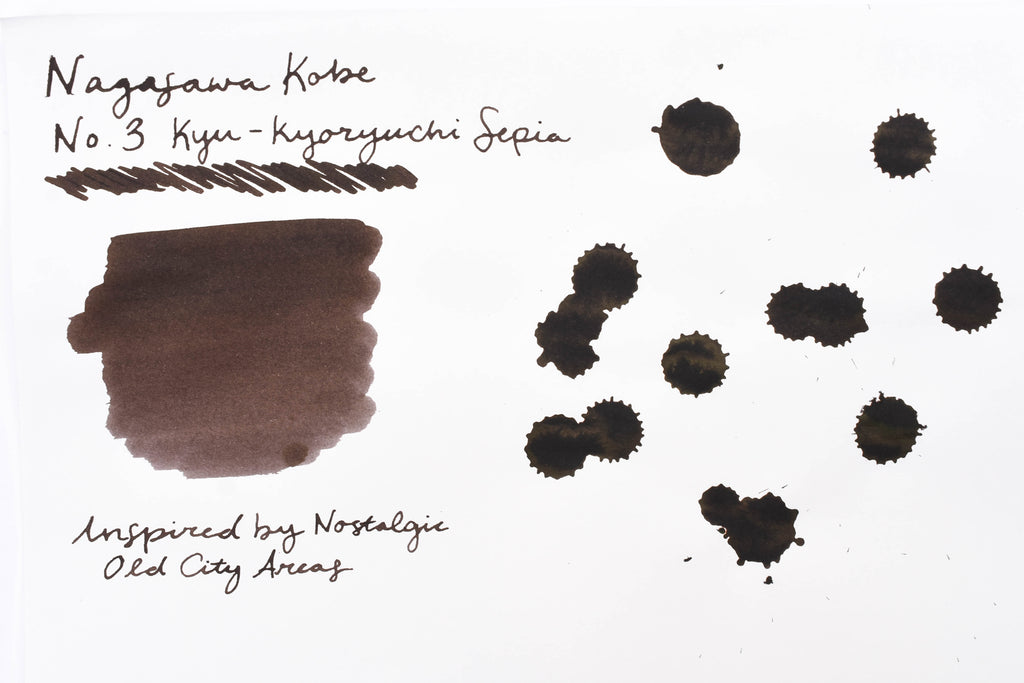 Nagasawa Kobe
No. 3 Kyu-Kyoryuchi Sepia
Inspired by Nostalgic
Old City Areas